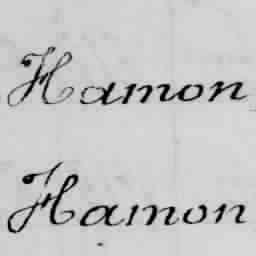 Hamon
Hamon